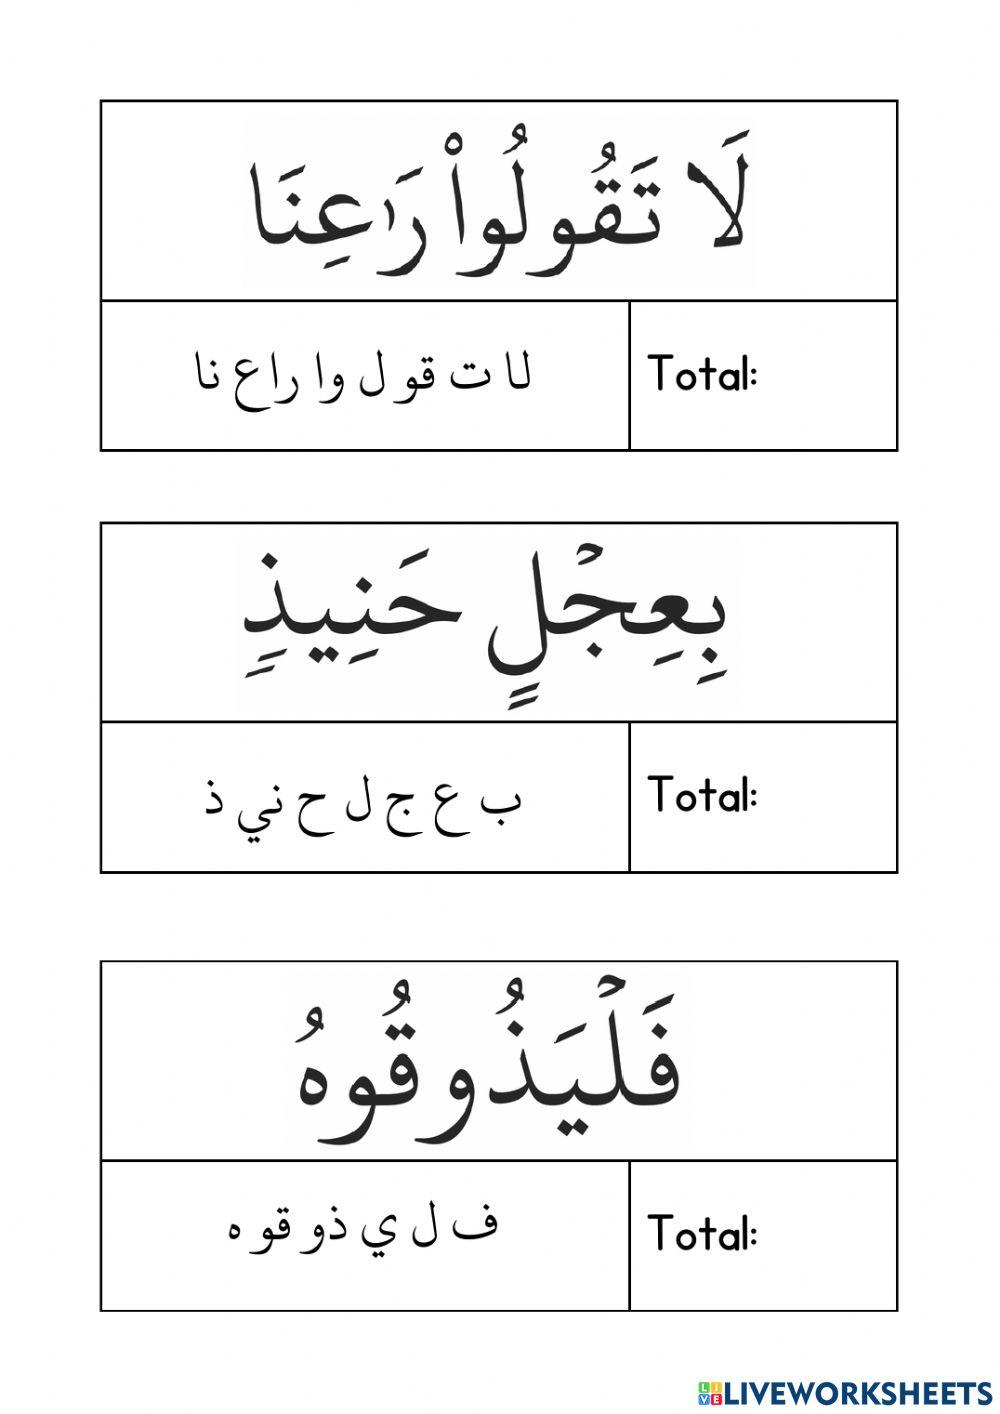 لَا تَقُولُوا۟ رَٰعِنَا
لا ت قو ل وا راع نا
Total:
بِعِجْلٍ حَنِيذٍ
ب ع ج ل ح ني ذ
Total:
فَلْيَذُوقُوهُ
ف ل ي ذو قو ه
Total:
LIVEWORKSHEETS